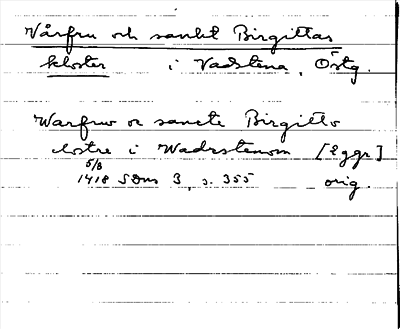 Vårfru och sankt Birgittas
kloster i Vadstena, Östg.
Warfrw oc sancte Birgitto
clostre i Wadzstenom [Eggr]
5/8
1418 SDns 3, s. 355 orig.